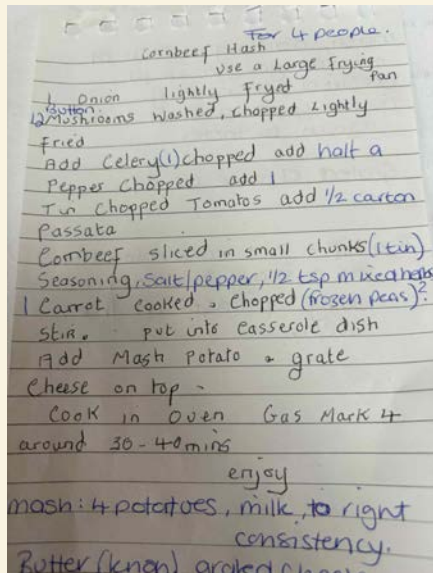 For 4 people.
Cornbeef Hash
Use a Large Frying Pan
1 Onion lightly fryed
12 Button Mushrooms Washed, Chopped Lightly
Fried
Add Celery (1) chopped add half a
Pepper Chopped add 1
Tin Chopped Tomatos add 1/2 carton
Passata
Cornbeef sliced in small chunks (1 tin)
Seasoning, salt/pepper, 1/2 tsp mixed herbs
1 Carrot cooked & Chopped (frozen peas)?
Stir. put into Casserole dish
Add Mash Potato & grate
Cheese on top.
Cook in Oven Gas Mark 4
around 30-40 mins
enjoy
mash: 4 potatoes, milk, to right
consistency.
Butter (knob) grated